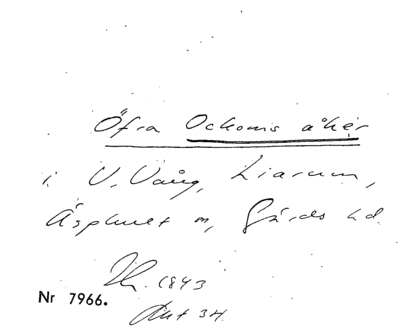 Öfra Ockoms åker
i V. Vång, Liarum,
Äsphult n, Gärds hd.
1843
Nr 7966.
Akt 34.